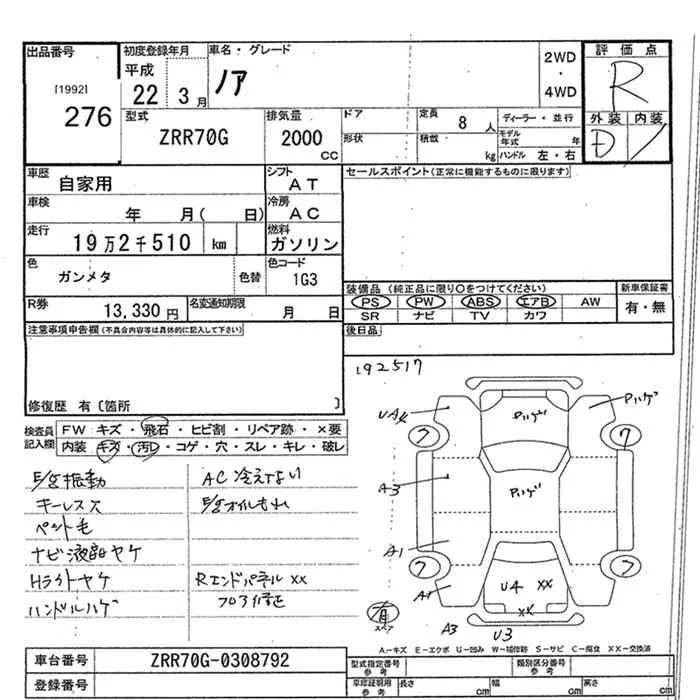 出品番号 初度登録年月 車名・グレード 評価点
[1992] 276
平成 22 3月 ノア 2WD・4WD R
型式 排気量 ドア 定員 8人 ディーラー・並行 外装 内装
ZRR70G 2000CC 形状 積載 kg モデル年式 年 ハンドル 左・右 D
車歴 自家用 シフト AT セールスポイント(正常に機能するものに限ります)
車検 年 月( 日) 冷房 AC
走行 19万2千510 km 燃料 ガソリン
色 ガンメタ 色替 色コード 1G3
装備品(純正品に限り○をつけてください) 新車保証書
PS PW ABS エアB AW 有・無
SR ナビ TV カワ
R券 13,330円 名変通知期限 月 日
注意事項申告欄(不具合内容等は具体的に記入して下さい) 後日品
192517
修復歴 有〔箇所 〕
検査員記入欄 FW キズ・飛石・ヒビ割・リペア跡・×要
内装・キズ・汚レ・コゲ・穴・スレ・キレ・破レ
E/g振動 AC冷えない
キーレス穴 E/gオイルもれ
ペット毛
ナビ液晶ヤケ
Hライトヤケ Rエンドパネル XX
ハンドルハゲ フロア修正
UA4 Pハゲ Pハゲ
フ フ
A3 Pハゲ
A1
フ フ
A1 U4 XX
XX
有 スペア
A3 U3
A-キズ E-エクボ U-凹み W-補修跡 S-サビ C-腐食 XX-交換済
車台番号 ZRR70G-0308792 型式指定番号 参考 類別区分番号 参考
登録番号 車庫証明用 参考 長さ cm 幅 cm 高さ cm